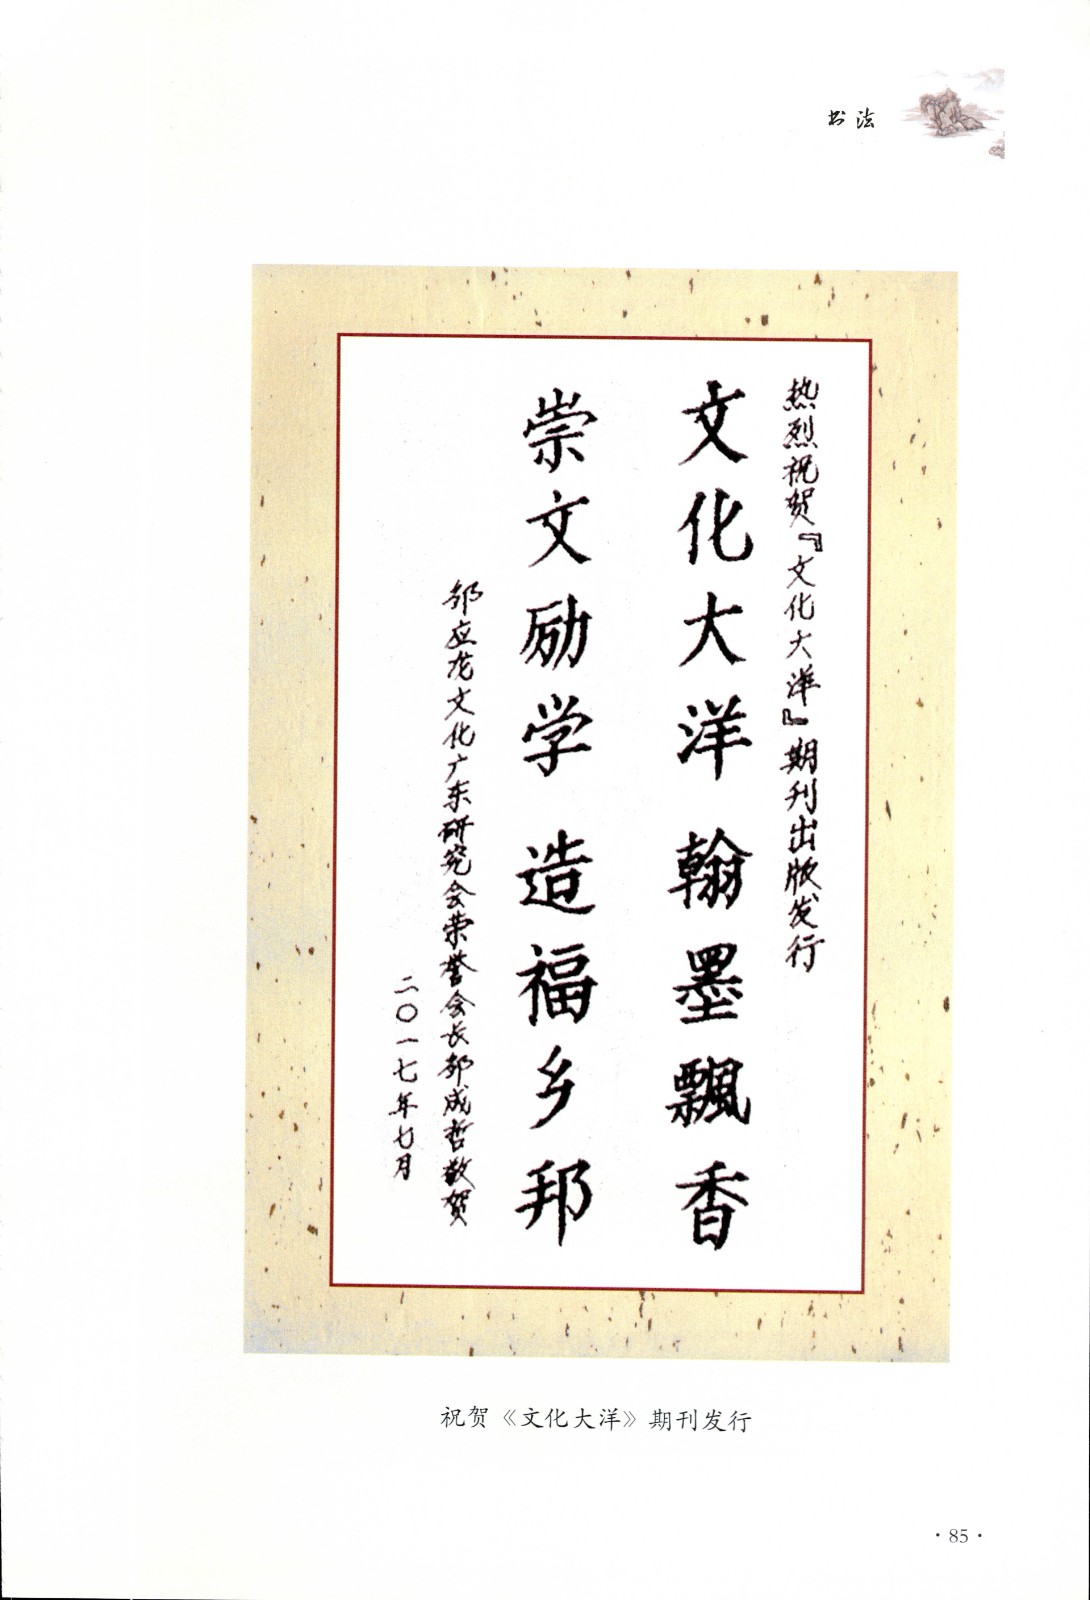 书法
热烈祝贺『文化大洋』期刊出版发行
文化大洋 翰墨飘香
崇文励学 造福乡邦
邹应龙文化广东研究会荣誉会长邹成哲敬贺
二〇一七年七月
祝贺《文化大洋》期刊发行
·85·